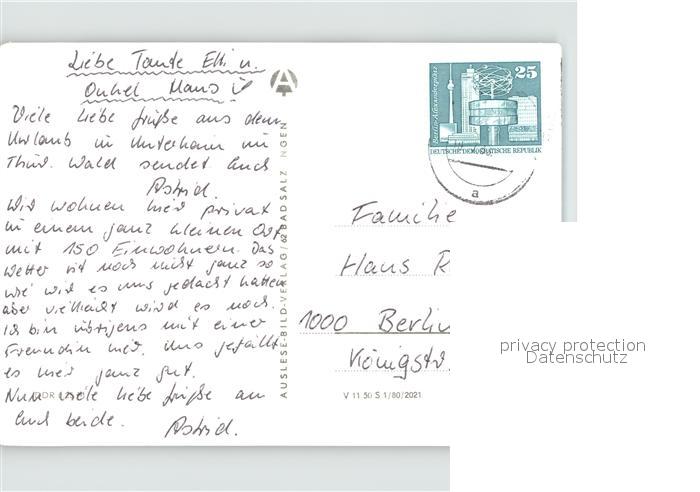 Liebe Tante Elli u.
Onkel Hans!
Viele liebe Grüße aus dem
Urlaub in Unterhain im
Thür. Wald sendet Euch
Astrid.
Wir wohnen hier privat
in einem ganz kleinen Ort
mit 150 Einwohnern. Das
Wetter ist noch nicht ganz so
wie wir es uns gedacht hatten
aber vielleicht wird es noch.
Ich bin übrigens mit einer
Freundin hier. Uns gefällt
es hier ganz gut.
Nun viele liebe Grüße an
Euch beide.
Astrid.
A
AUSLESE-BILD-VERLAG/62 BAD SALZ NGEN
DDR
V 11 50 S 1/80/2021
Berlin-Alexanderplatz
25
DEUTSCHE DEMOKRATISCHE REPUBLIK
a
Familie
Hans R
1000 Berlin
Königstr.
privacy protection
Datenschutz